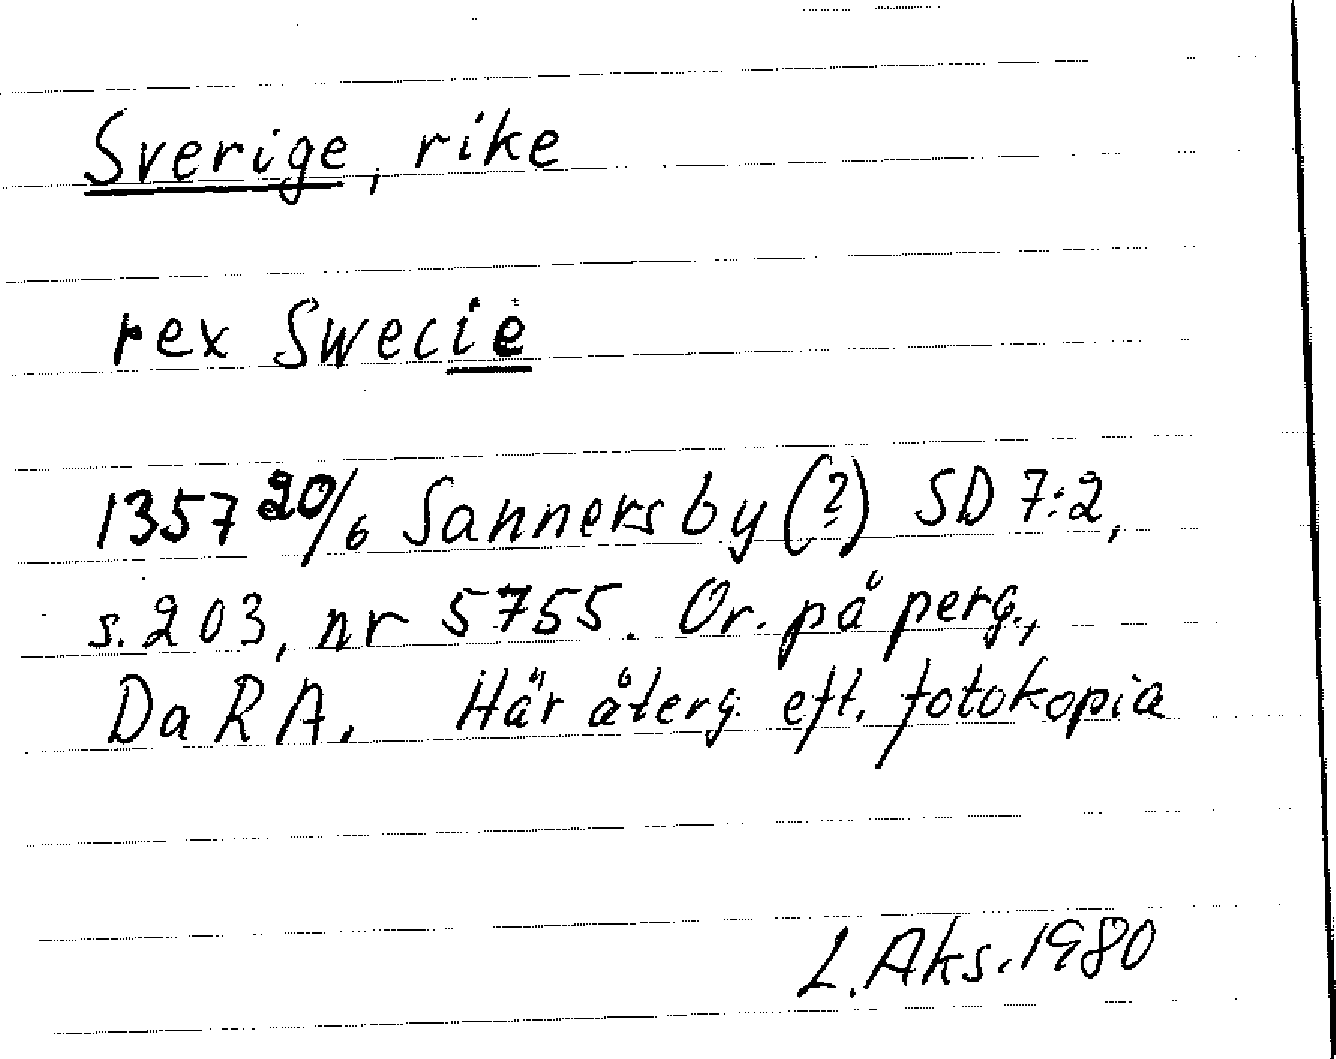 Sverige, rike
rex Swecie
1357 20/6 Sannersby (?) SD 7:2,
s. 203, nr 5755. Or. på perg.,
Da RA. Här återg. eft. fotokopia
L. Aks. 1980